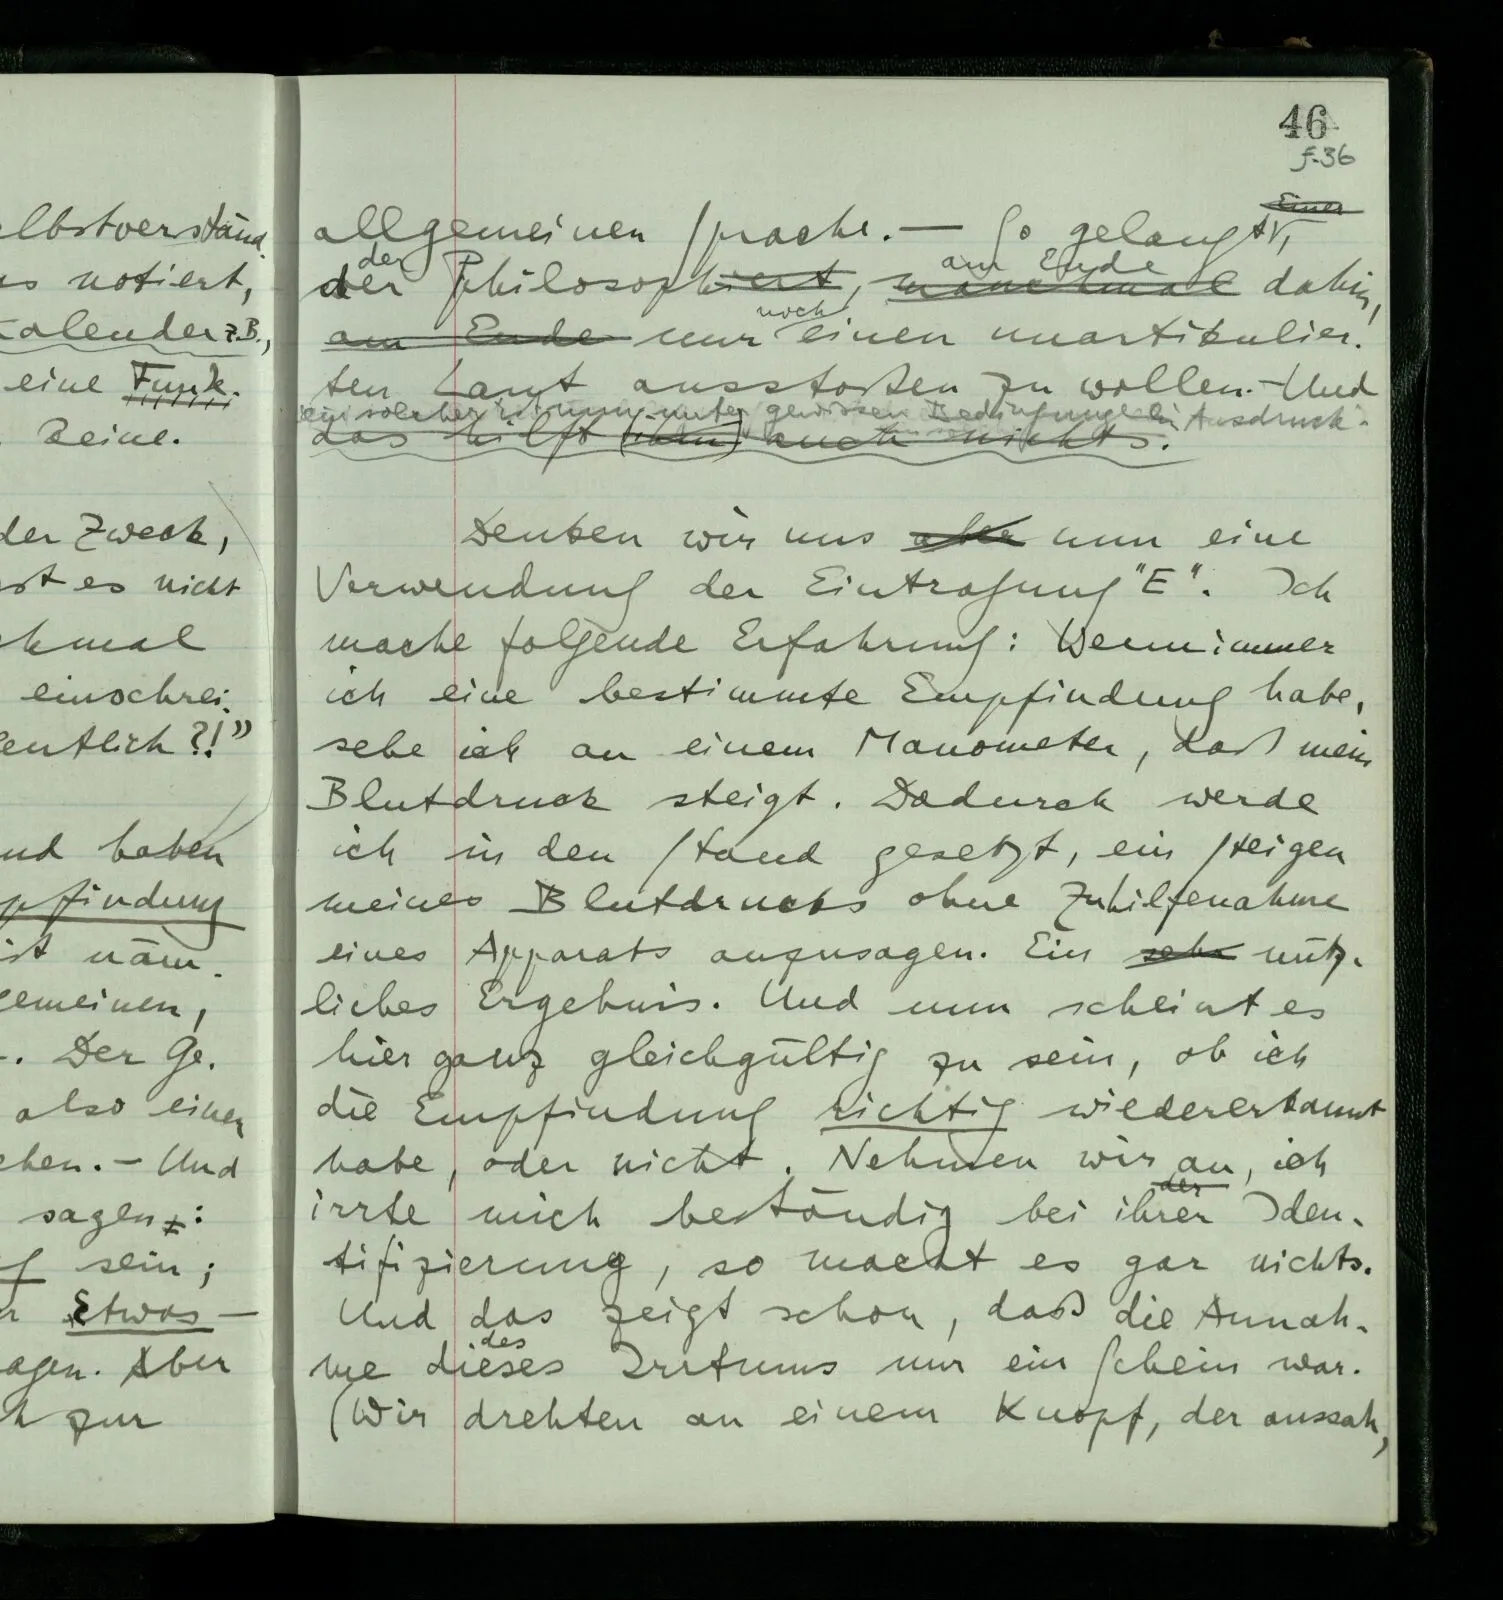 46
f. 36
elbstverständ.
us notiert,
Kalender z.B.,
eine Funk.
keine.
der Zweck,
ist es nicht
chmal
einschrei.
entlich?!”
und haben
pfindung
ist näm.
gemeinen,
-. Der Ge.
also einen
chen. – Und
sagen:
sein;
Etwas –
agen. Aber
zur
Einer
allgemeinen Sprache. — So gelangt,
der am Ende
der Philosophiert, manchmal dahin,
noch
am Ende nur einen unartikulier.
ten Laut ausstoßen zu wollen. – Und
ein solcher ist nur unter gewissen Bedingungen ein Ausdruck.
das hilft (ihm) auch nichts.
Denken wir uns aber nun eine
Verwendung der Eintragung "E". Ich
mache folgende Erfahrung: Wenn immer
ich eine bestimmte Empfindung habe,
sehe ich an einem Manometer, daß mein
Blutdruck steigt. Dadurch werde
ich in den Stand gesetzt, ein Steigen
meines Blutdrucks ohne Zuhilfenahme
eines Apparats anzusagen. Ein sehr nütz.
liches Ergebnis. Und nun scheint es
hier ganz gleichgültig zu sein, ob ich
die Empfindung richtig wiedererkannt
habe, oder nicht. Nehmen wir an, ich
der
irrte mich beständig bei ihrer Iden.
tifizierung, so macht es gar nichts.
Und das zeigt schon, daß die Annah.
des
me dieses Irrtums nur ein Schein war.
(Wir drehten an einem Knopf, der aussah,